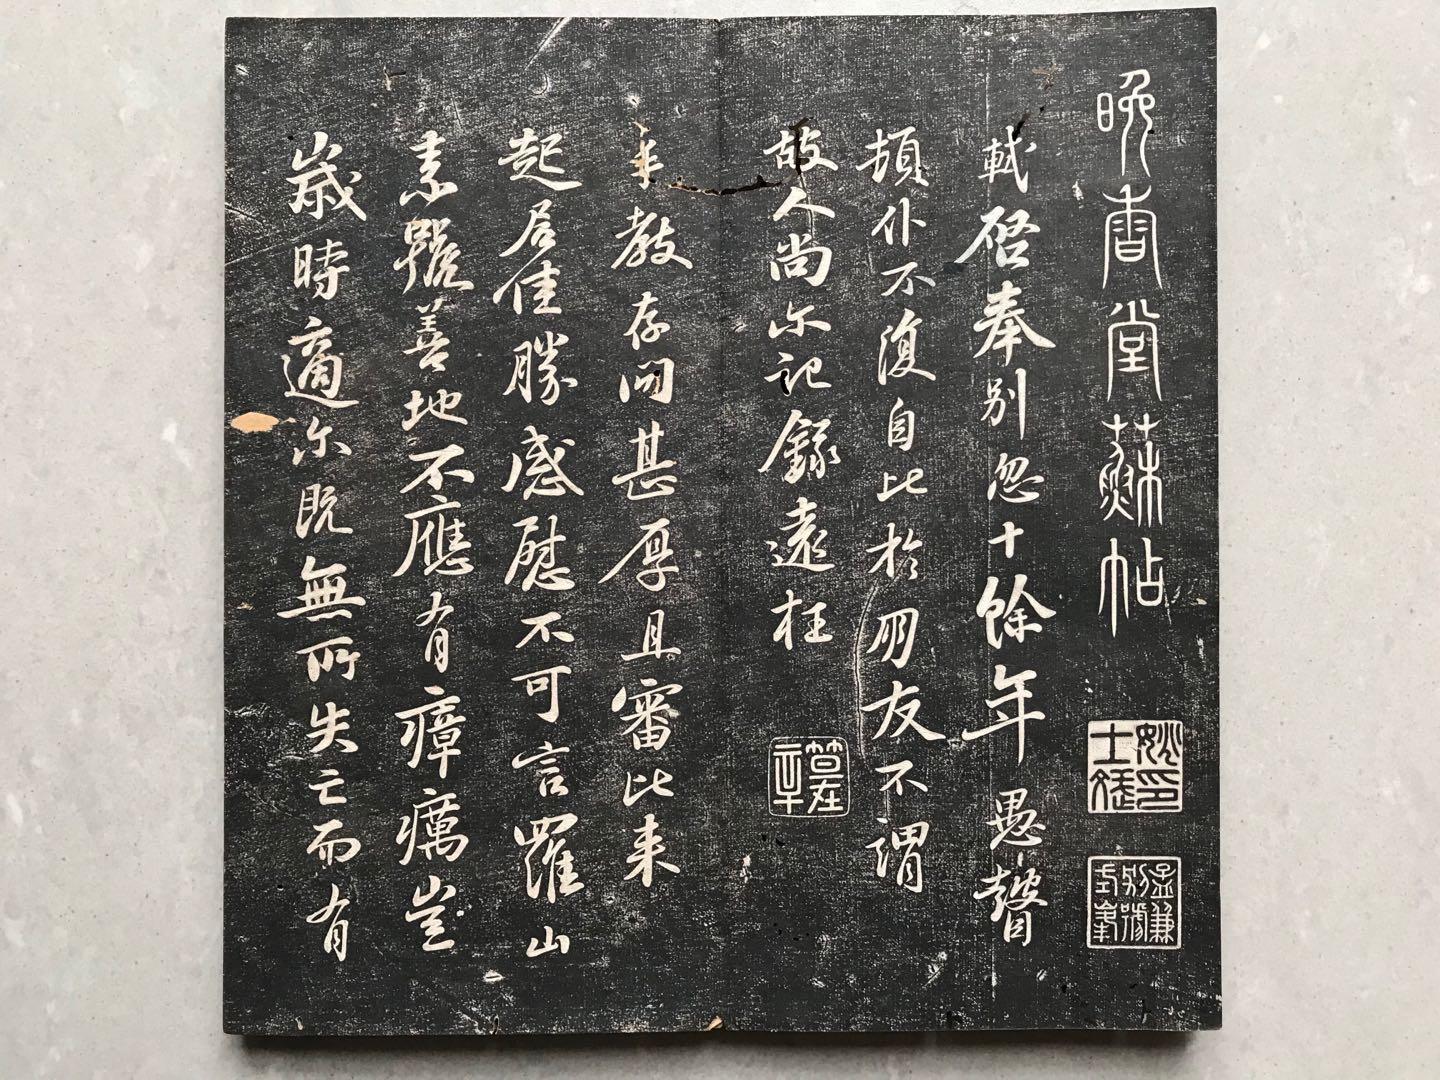 晚香堂蘇帖
軾啓奉別忽十餘年愚瞽
頓仆不復自比於朋友不謂
故人尚尔記錄遠枉
手教存问甚厚且審比来
起居佳勝感慰不可言羅山
素號善地不應有瘴癘豈
歳時適尔既無所失亡而有